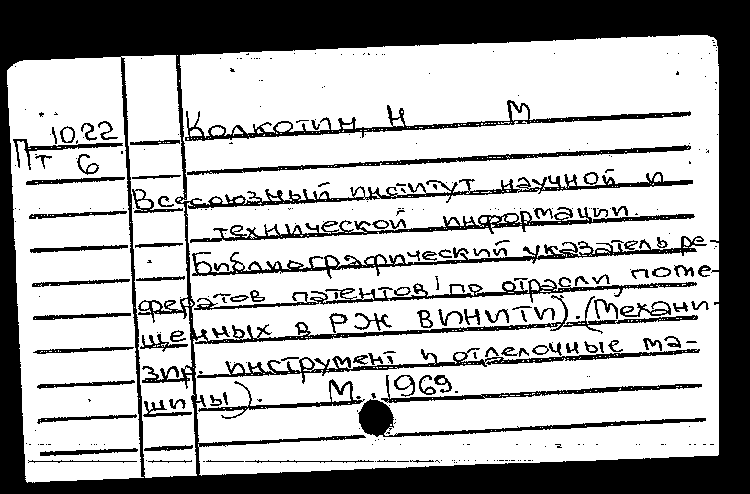 10.22
Пт 6
Колкотин, Н М
Всесоюзный институт научной и
технической информации.
Библиографический указатель ре-
фератов патентов (по отрасли, поме-
щенных в РЖ ВИНИТИ). (Механи-
зир. инструмент и отделочные ма-
шины). М., 1969.